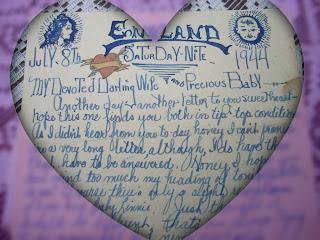 ENGLAND
JULY. 8th SATURDAY-NITE 1944
My Devoted Darling Wife and Precious Baby —
Another day – another letter to you sweetheart
hope this one finds you both in tip top condition
As I didn't hear from you to-day honey I can't
a very long letter, although, lots have
have to be answered. Honey I hope
mind too much my heading of
only a slight
Just
that's